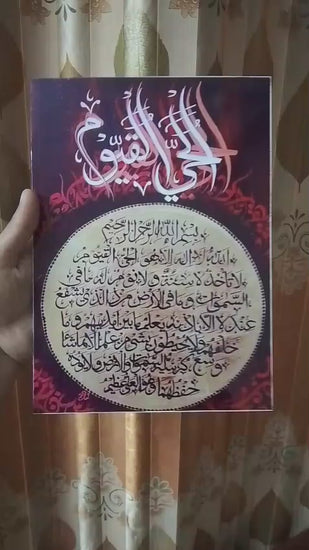 الحي القيوم
بسم الله الرحمن الرحيم
الله لا اله الا هو الحي القيوم
لا تأخذه سنة ولا نوم له ما في
السموات وما في الأرض من ذا الذي يشفع
عنده الا باذنه يعلم ما بين ايديهم وما
خلفهم ولا يحيطون بشيء من علمه الا بما شاء
وسع كرسيه السموات والارض ولا يؤده
حفظهما وهو العلي العظيم